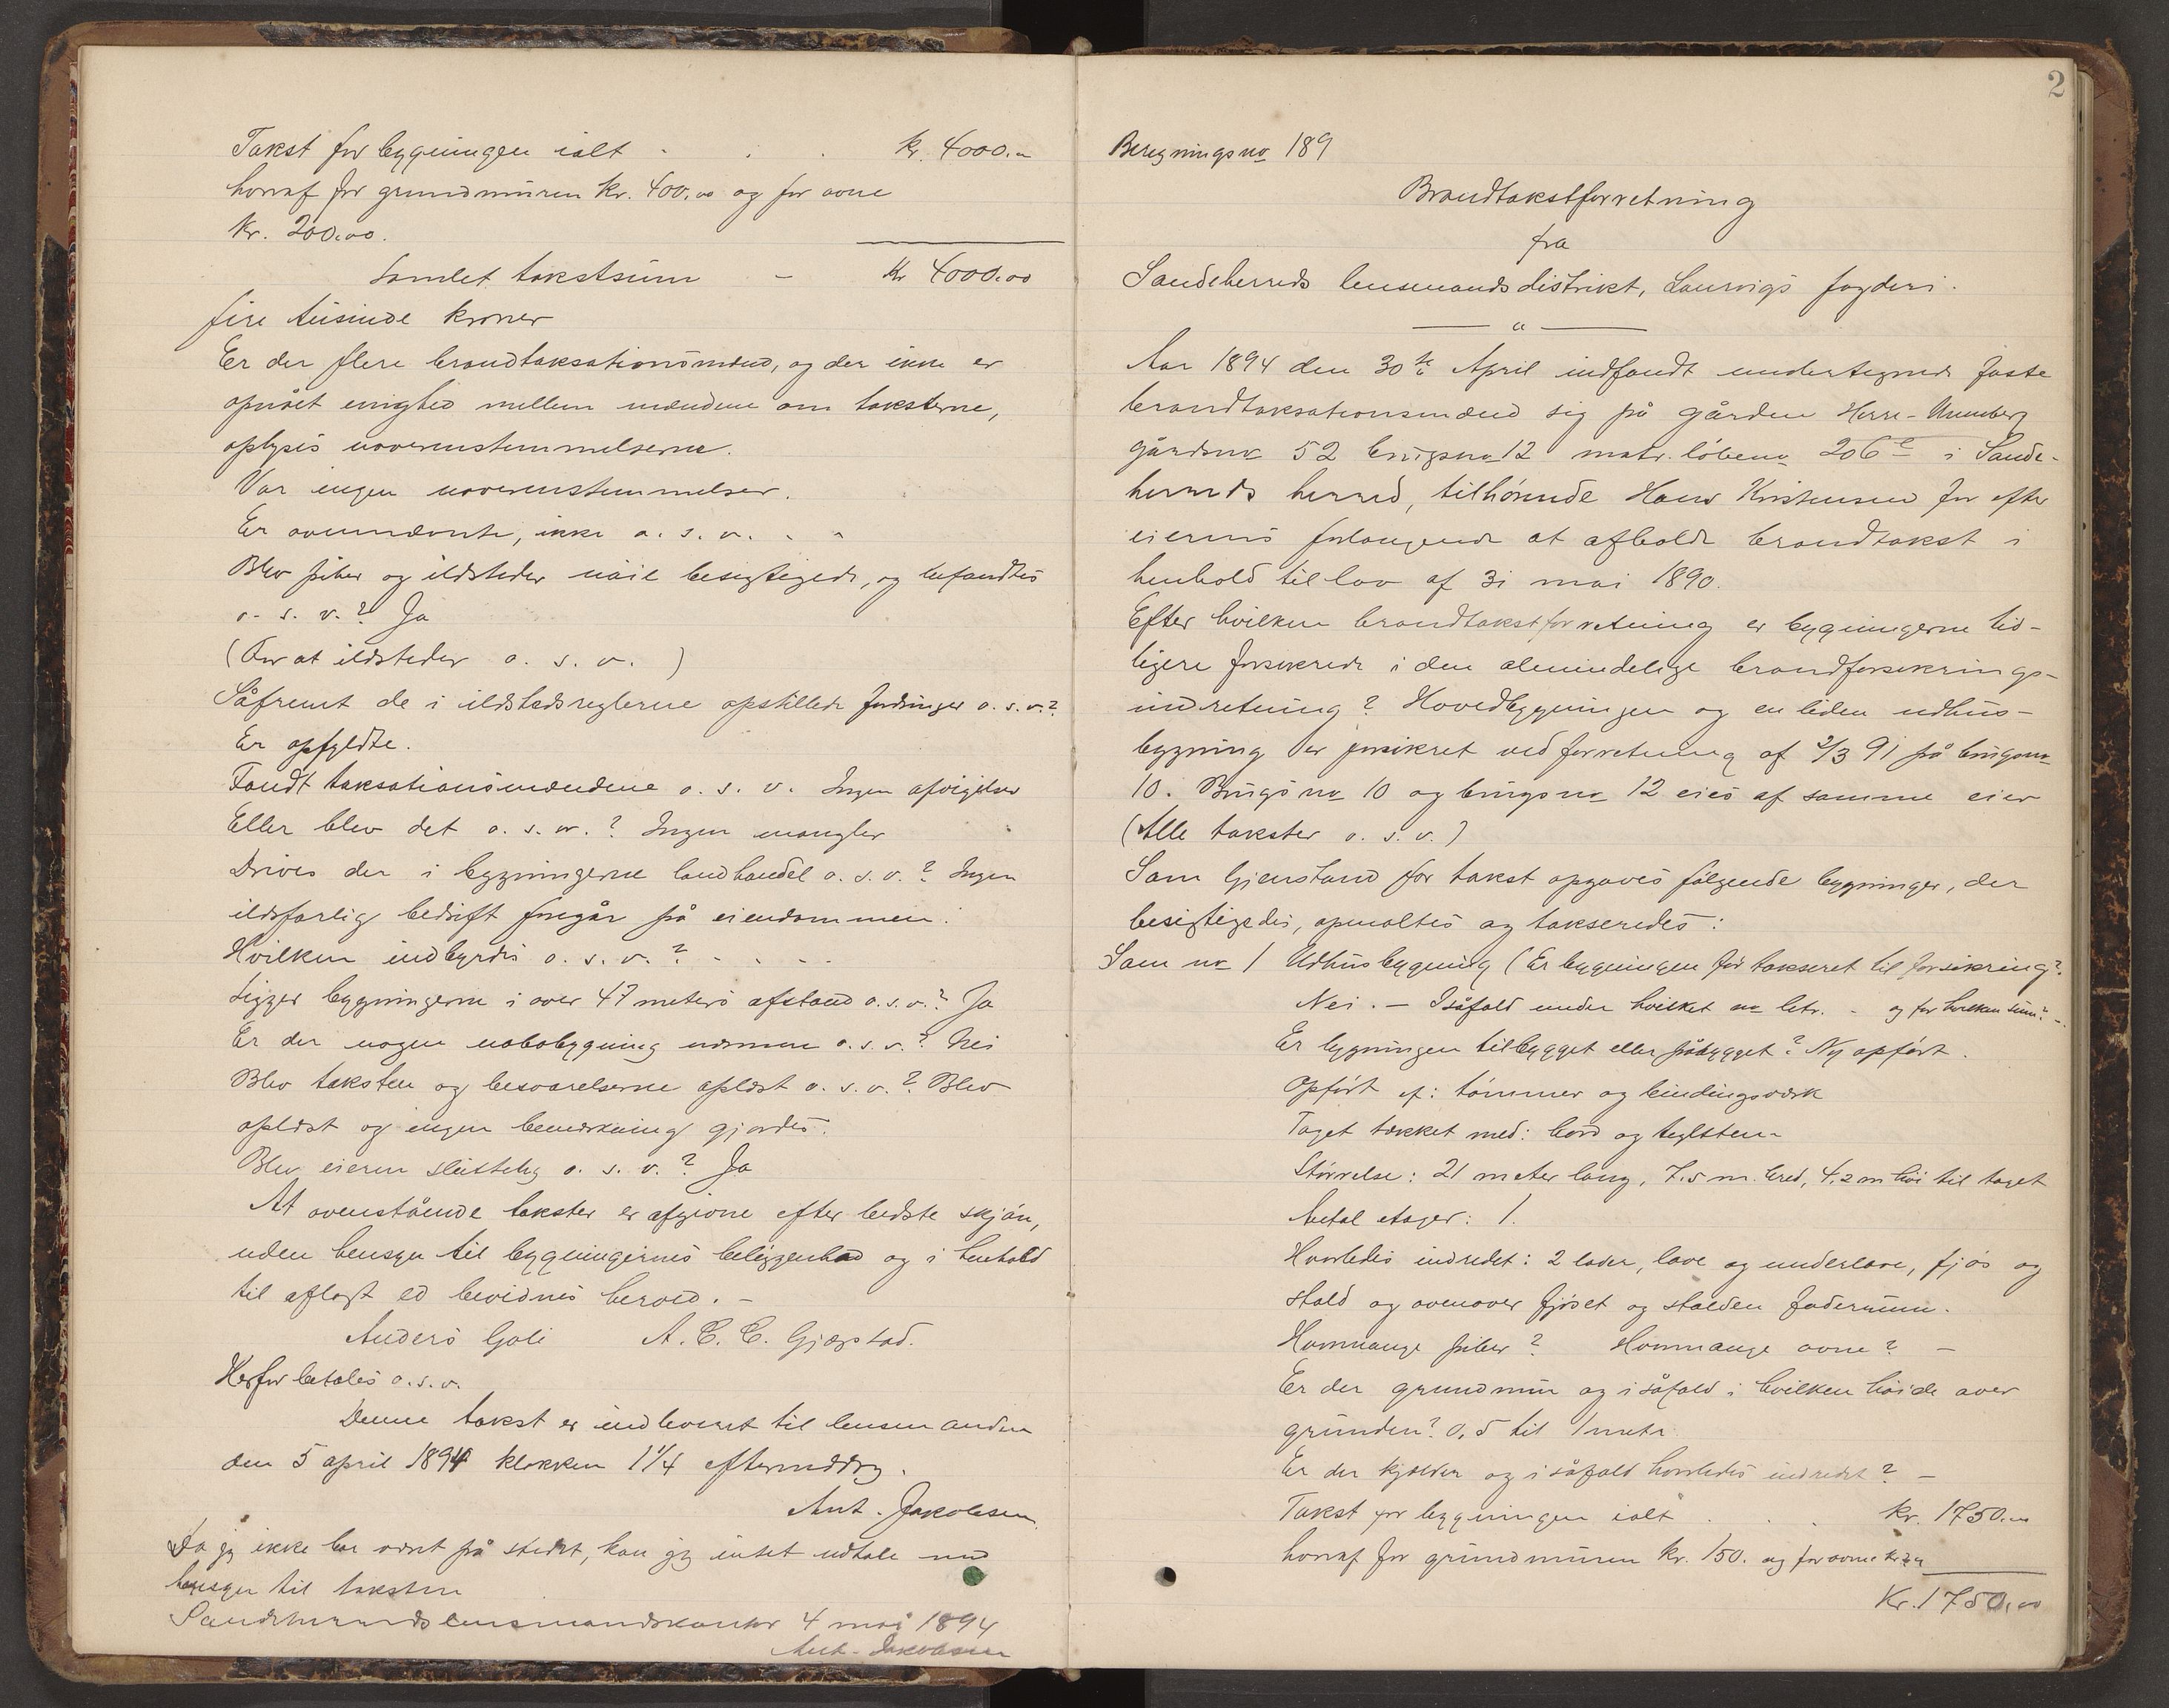 Takst for bygningen ialt - . . kr. 4000.00
hvoraf for grundmuren kr. 400.00 og for ovne
kr. 200.00.
Samlet takstsum - kr 4000.00
fire tusinde kroner
Er der flere brandtaksationsmænd, og der ikke er
opnået enighed mellem mændene om taksterne,
oplyses uoverenstemmelserne.
Var ingen uoverenstemmelser.
Er ovennævnte, ikke o. s. v. . .
Blev piber og ildsteder nøie besigtigede, og befandtes
o. s. v.? Ja
(Om at ildsteder o. s. v. )
Såfremt de i ildstedsreglerne opstillede fordringer o. s. v.?
Er opfyldte.
Fandt taksationsmændene o. s. v. Ingen afvigelser
Eller blev det o. s. v.? Ingen mangler
Drives der i bygningerne landhandel o. s. v.? Ingen
ildsfarlig bedrift foregår på eiendommen.
Hvilken indbyrdes o. s. v.? - . - -
Ligger bygningerne i over 47 meters afstand o. s. v.? Ja
Er der nogen nabobygning nærmere o. s. v.? Nei
Blev taksten og besvarelserne oplæst o. s. v.? Blev
oplæst og ingen bemærkning gjordes.
Blev eieren sluttelig o. s. v.? Ja
At ovenstående takster er afgivne efter bedste skjøn,
uden hensyn til bygningernes beliggenhed og i henhold
til aflagt ed bevidnes herved. -
Anders Goli A. C. C. Gjægstad.
Herfor betales o. s. v.
Denne takst er indleveret til lensmanden
den 5 april 1894 klokken 1 1/4 eftermiddag.
Ant. Jakobsen.
Da jeg ikke har været på stedet, kan jeg intet udtale med
hensyn til taksten
Sandeherreds lensmandskontor 4 mai 1894
Ant. Jakobsen
2
Beregningsno 189
Brandtakstforretning
fra
Sandeherreds lensmandsdistrikt, Laurvigs fogderi.
Aar 1894 den 30te April indfandt undertegnede faste
brandtaksationsmænd sig på gården Herre-Unneberg
gårdsno 52 brugsno 12 matr. løbeno 206c i Sande-
herreds herred, tilhørende Hans Kristensen for efter
eierens forlangende at afholde brandtakst i
henhold til lov af 31 mai 1890.
Efter hvilken brandtakstforretning er bygningerne tid-
ligere forsikrede i den almindelige brandforsikrings-
indretning? Hovedbygningen og en liden udhus-
bygning er forsikret ved forretning af 2/3 91 på brugsno
10. Brugsno 10 og brugsno 12 eies af samme eier
(Alle takster o. s. v.)
Som gjenstand for takst opgaves følgende bygninger, der
besigtigedes, opmaltes og takseredes:
Som no 1 Udhusbygning (Er bygningen før takseret til forsikring?
Nei. - Isåfald under hvilket no litr. - og for hvilken sum? -.
Er bygningen tilbygget eller påbygget? Ny opført.
Opført af: tømmer og bindingsværk
Taget tækket med: bord og teglsten
Størrelse: 21 meter lang, 7.5 m. bred, 4.2 m høi til taget
Antal etager: 1.
Hvorledes indredet: 2 lader, lave og underlave, fjøs og
stald og ovenover fjøset og stalden foderrum.
Hvormange piber? Hvormange ovne? -
Er der grundmur og isåfald i hvilken høide over
grunden? 0,5 til 1 meter
Er der kjælder og isåfald hvorledes indredet? -
Takst for bygningen ialt . . . kr. 1750.00
hvoraf for grundmuren kr. 150. og for ovne kr
Kr. 1750.00